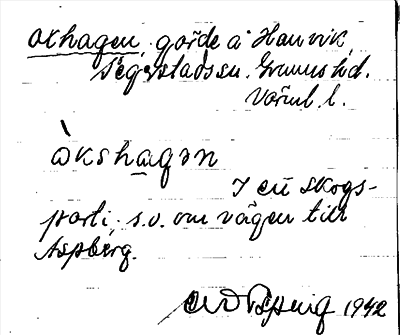 Oxhagen, gärde å Hanvik,
Segerstads sn. Grums hd.
Värml. l.
òkshagan
I en skogs-
parti, s.o. om vägen till
Aspberg.
1942